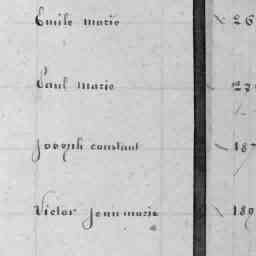 Emile marie 26
Paul marie
Joseph constant 187
Victor Jean marie 189